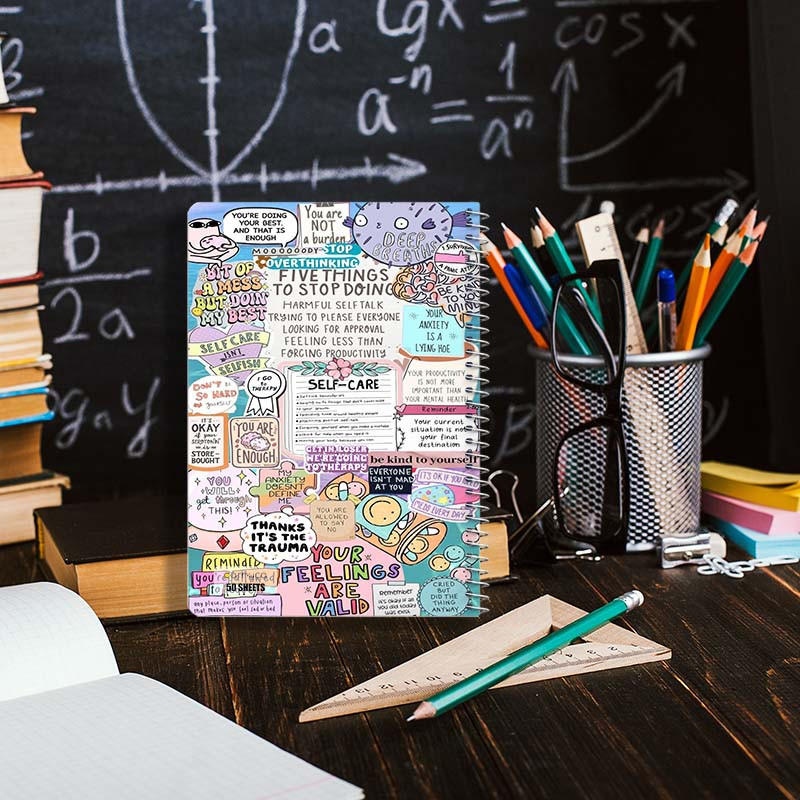 a
log x =
cos x
a⁻ⁿ = 1/aⁿ
b
2a
YOU'RE DOING
YOUR BEST,
AND THAT IS
ENOUGH
You are
NOT
a burden
DEEP
BREATHS
I SURVIVED
A PANIC ATTACK
MOOOOOODY
STOP
OVERTHINKING
BIT OF
A MESS
BUT DOIN'
MY BEST
FIVE THINGS
TO STOP DOING
HARMFUL SELF TALK
TRYING TO PLEASE EVERYONE
LOOKING FOR APPROVAL
FEELING LESS THAN
FORCING PRODUCTIVITY
YOUR
ANXIETY
IS A
LYING HOE
SELF CARE
ISN'T
SELFISH
DON'T BE
SO HARD
on yourself
I GO
TO
THERAPY
SELF-CARE
YOUR PRODUCTIVITY
IS NOT MORE
IMPORTANT THAN
YOUR MENTAL HEALTH
Reminder
Your current
situation is not
your final
destination
IT'S
OKAY
if your
SEROTONIN
is
STORE-
BOUGHT
YOU ARE
ENOUGH
GET IN LOSER
WE'RE GOING
TO THERAPY
be kind to yourself
YOU
WILL
get through
THIS!
MY
ANXIETY
DOESN'T
DEFINE
ME
EVERYONE
ISN'T MAD
AT YOU
IT'S OK IF YOU
MEDS EVERY DAY
YOU ARE
ALLOWED TO
SAY
NO
THANKS
IT'S THE
TRAUMA
REMINDER
50 SHEETS
any place, person or situation
that makes you feel sad or bad
YOUR
FEELINGS
ARE
VALID
Remember
it's okay if all
you did today
was exist
CRIED
BUT
DID THE
THING
ANYWAY